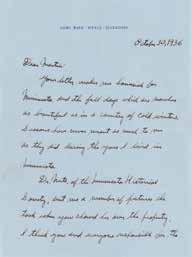 October 30, 1936
Dear Martin:
Your letter makes me homesick for
Minnesota and the fall days which are
as beautiful as in a country of cold winters
Seasons have never meant as much to me
as they did during the years I lived in
Minnesota.
Dr. of the Minnesota Historical
Society, sent me a number of pictures he
took when you showed him over the property.
I think you and everyone responsible for the